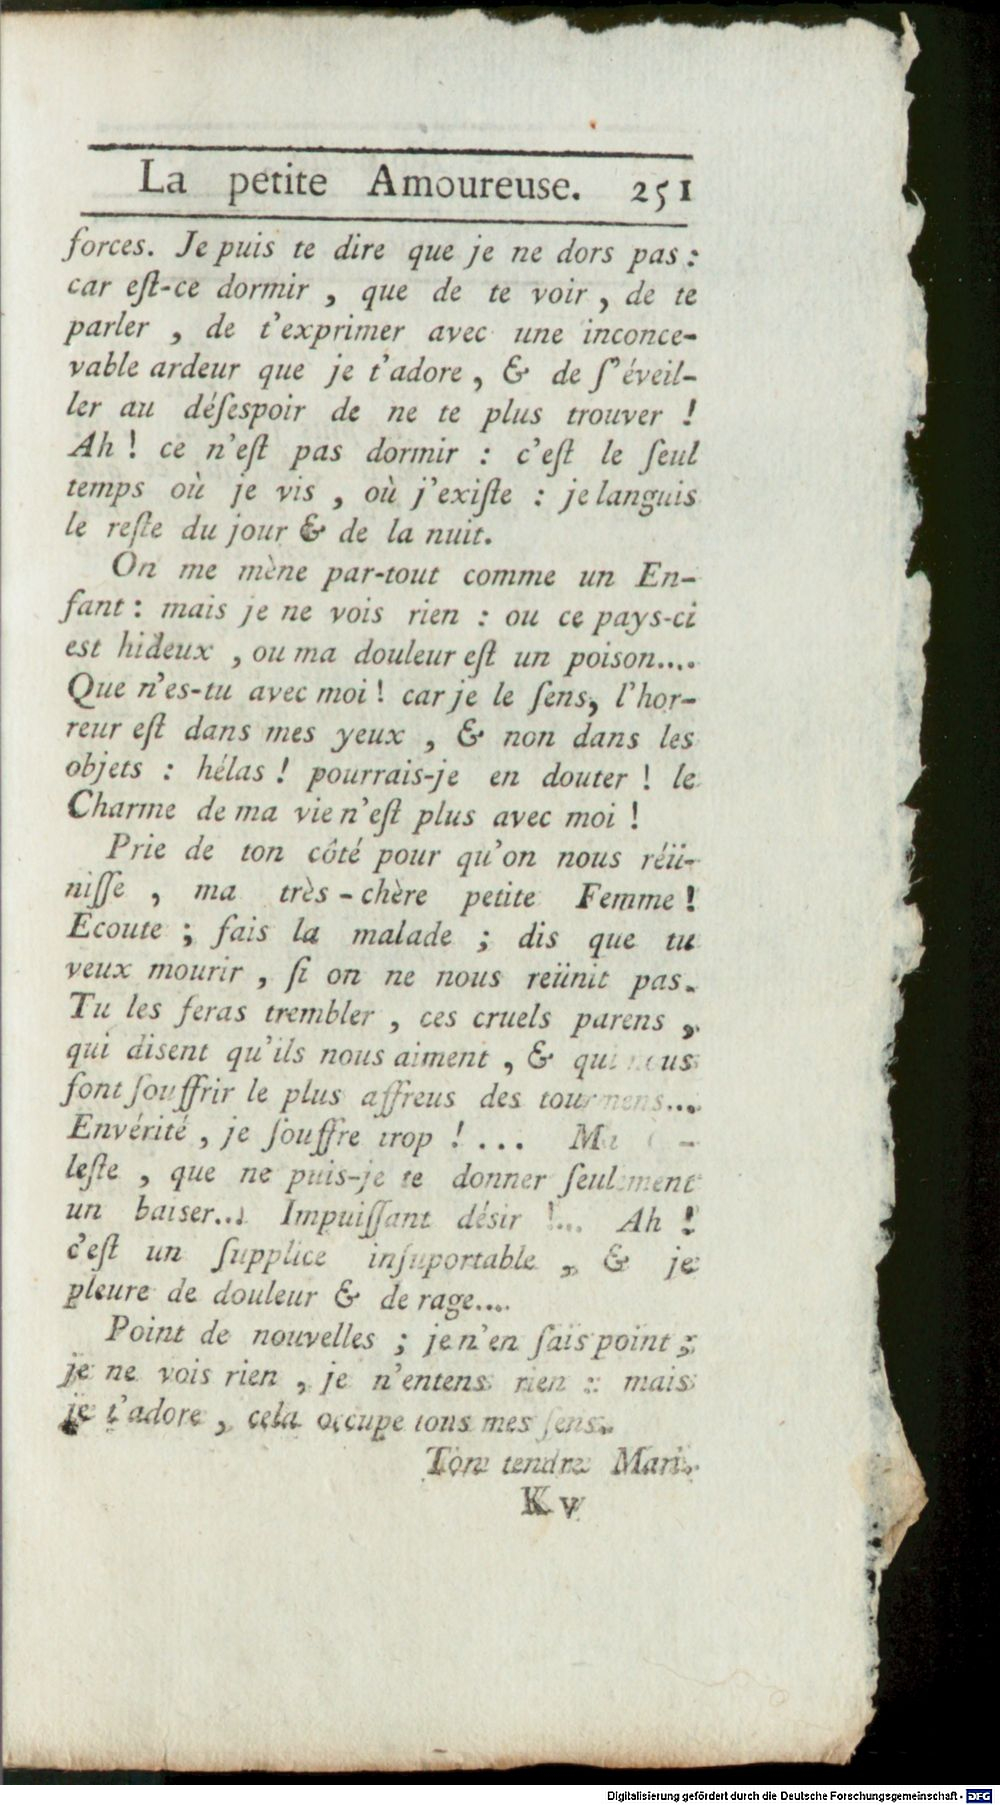 La petite Amoureuse. 251
forces. Je puis te dire que je ne dors pas :
car eſt-ce dormir , que de te voir , de te
parler , de t'exprimer avec une inconce-
vable ardeur que je t'adore , & de ſ'éveil-
ler au déſespoir de ne te plus trouver !
Ah ! ce n'eſt pas dormir : c'eſt le ſeul
temps où je vis , où j'exiſte : je languis
le reſte du jour & de la nuit.
On me mène par-tout comme un En-
fant : mais je ne vois rien : ou ce pays-ci
est hideux , ou ma douleur eſt un poison....
Que n'es-tu avec moi ! car je le ſens, l'hor-
reur eſt dans mes yeux , & non dans les
objets : hélas ! pourrais-je en douter ! le
Charme de ma vie n'eſt plus avec moi !
Prie de ton côté pour qu'on nous réü-
niſſe , ma très-chère petite Femme !
Ecoute ; fais la malade ; dis que tu
veux mourir , ſi on ne nous reünit pas.
Tu les feras trembler , ces cruels parens ,
qui disent qu'ils nous aiment , & qui nous
font ſouffrir le plus affreus des tourmens...
Envérité , je ſouffre trop ! ... Ma -
leſte , que ne puis-je te donner ſeulement
un baiser... Impuiſſant désir !... Ah !
c'eſt un ſupplice inſuportable , & je
pleure de douleur & de rage....
Point de nouvelles ; je n'en ſais point ;
je ne vois rien , je n'entens rien : mais
je t'adore , cela occupe tous mes ſens.
Ton tendre Mari.
K v
Digitalisierung gefördert durch die Deutsche Forschungsgemeinschaft - DFG